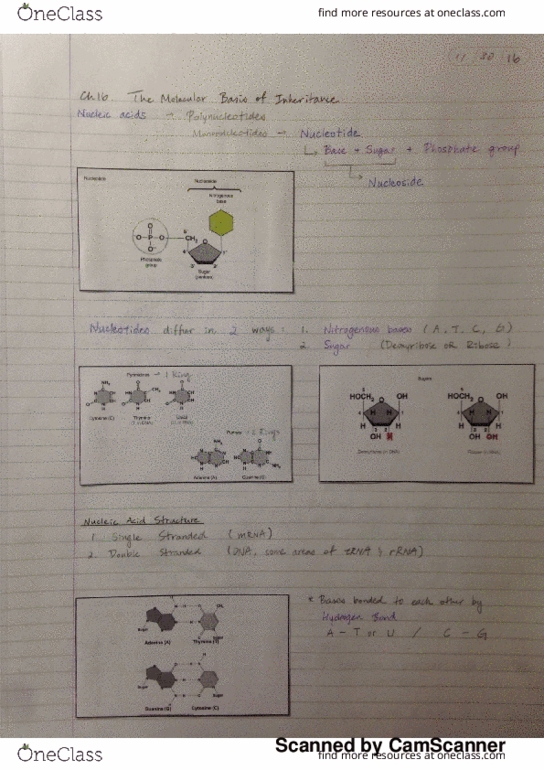 OneClass find more resources at oneclass.com
11 30 16
Ch16. The Molecular Basis of Inheritance
Nucleic acids → Polynucleotides
Mononucleotides → Nucleotide
↳ Base + Sugar + Phosphate group
↳ Nucleoside
Nucleotide
Nucleoside
Nitrogenous base
O⁻ P O CH₂ O
O⁻
5' 4' 1' 3' 2'
Phosphate group
Sugar (pentose)
Nucleotides differ in 2 ways: 1. Nitrogenous bases (A, T, C, G)
2. Sugar (Deoxyribose or Ribose)
Pyrimidines → 1 Ring
Cytosine (C) Thymine Uracil
Purines - 2 Rings
Adenine (A) Guanine (G)
Sugars
HOCH₂ O OH HOCH₂ O OH
H H H H
OH H OH OH
Nucleic Acid Structure
1. Single Stranded (mRNA)
2. Double Stranded (DNA, some areas of tRNA & rRNA)
* Bases bonded to each other by
Hydrogen Bond
A - T or U / C - G
Sugar Sugar
Adenine (A) Thymine (T)
Sugar Sugar
Guanine (G) Cytosine (C)
Scanned by CamScanner
OneClass find more resources at oneclass.com